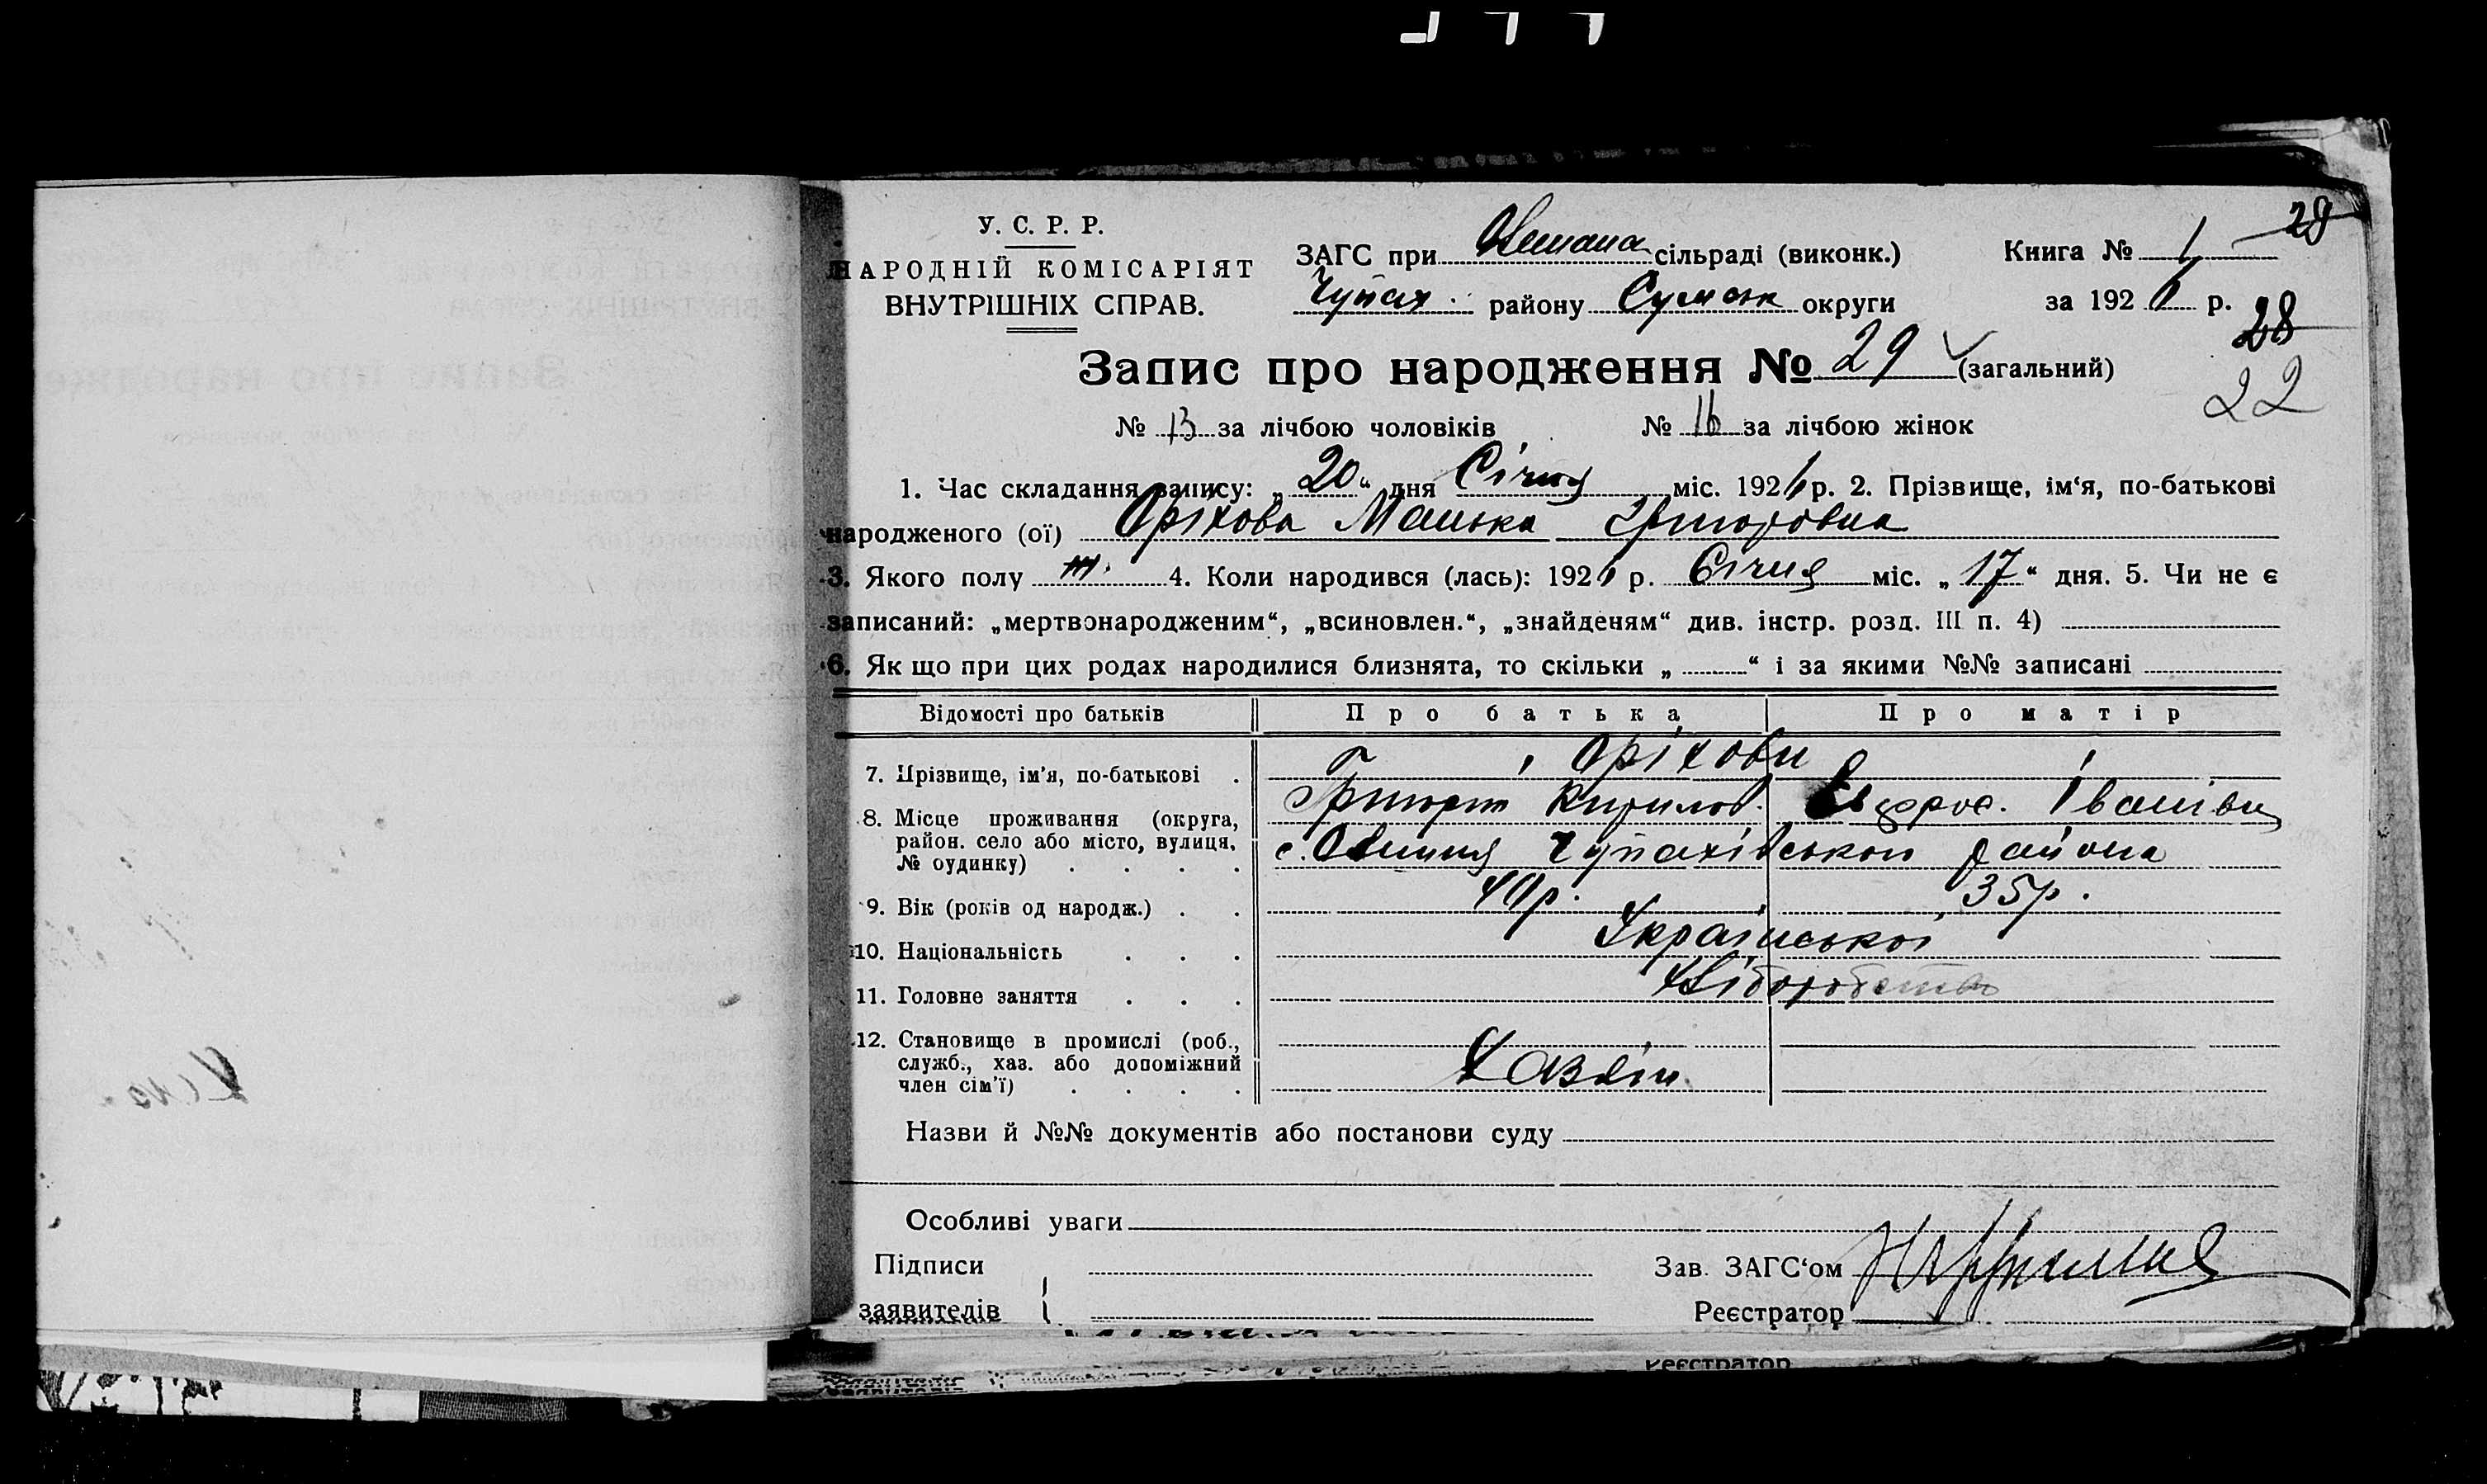 У. С. Р. Р.
НАРОДНІЙ КОМІСАРІЯТ
ВНУТРІШНІХ СПРАВ.
ЗАГС при сільраді (виконк.)
Чупах. району Сумськ округи
Книга № 1
28
за 192 р.
28
22
Запис про народження № 29 (загальний)
№ 13 за лічбою чоловіків № 16 за лічбою жінок
1. Час складання запису: „20“ дня Січня міс. 192 р. 2. Прізвище, ім‘я, по-батькові
народженого (ої) Оріхова Манька Григоровна
3. Якого полу 4. Коли народився (лась): 192 р. Січня міс. „17“ дня. 5. Чи не є
записаний: „мертвонародженим“, „всиновлен.“, „знайденям“ див. інстр. розд. III п. 4)
6. Як що при цих родах народилися близнята, то скільки „ “ і за якими №№ записані
Відомості про батьків Про батька Про матір
7. Прізвище, ім'я, по-батькові . Оріхови
Григорій Кирилов. Івановна
8. Місце проживання (округа, район. село або місто, вулиця, № будинку) . . . . с. Чупахівського району
9. Вік (років од народж.) . . 40р. 35р.
10. Національність . . . Української
11. Головне заняття . . . Хліборобство
12. Становище в промислі (роб., служб., хаз. або допоміжний член сім'ї) . . . . Хазяїн
Назви й №№ документів або постанови суду
Особливі уваги
Підписи
заявителів
Зав. ЗАГС‘ом
Реєстратор
Реєстратор